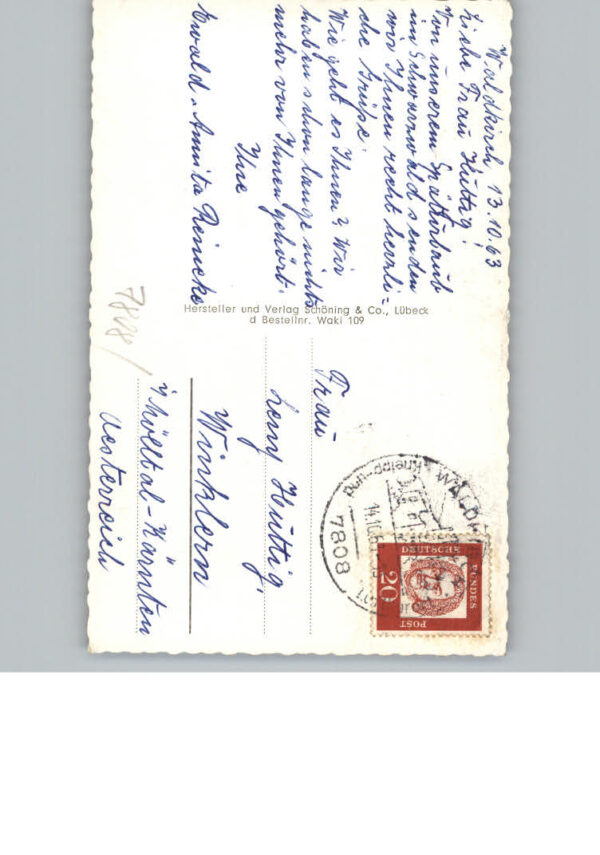 Waldkirch, 13.10.63
Liebe Frau Hüttig!
Von unserem Spätturlaub
im Schwarzwald senden
wir Ihnen recht herzli-
che Grüße.
Wie geht es Ihnen? Wir
haben schon lange nichts
mehr von Ihnen gehört.
Ihre
Ewald u. Annita Reincke
Hersteller und Verlag Schöning & Co., Lübeck
d Bestellnr. Waki 109
Frau
Leny Hüttig,
Winklern
i/Mölltal-Kärnten
Oesterreich
7808
Kneipp- und
DEUTSCHE
BUNDES
POST
20